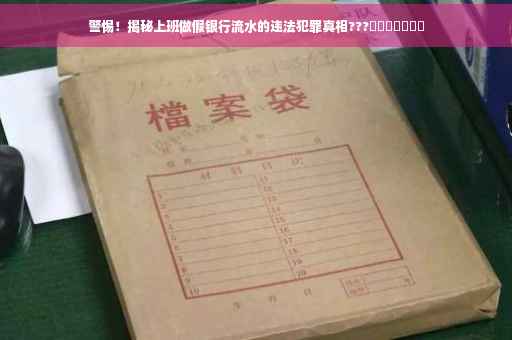 警惕！揭秘上班做假银行流水的违法犯罪真相???□□□□□□□
檔案袋
材料目次
1 11
2 12
3 13
4 14
5 15
6 16
7 17
8 18
9 19
10 20
年 月 日